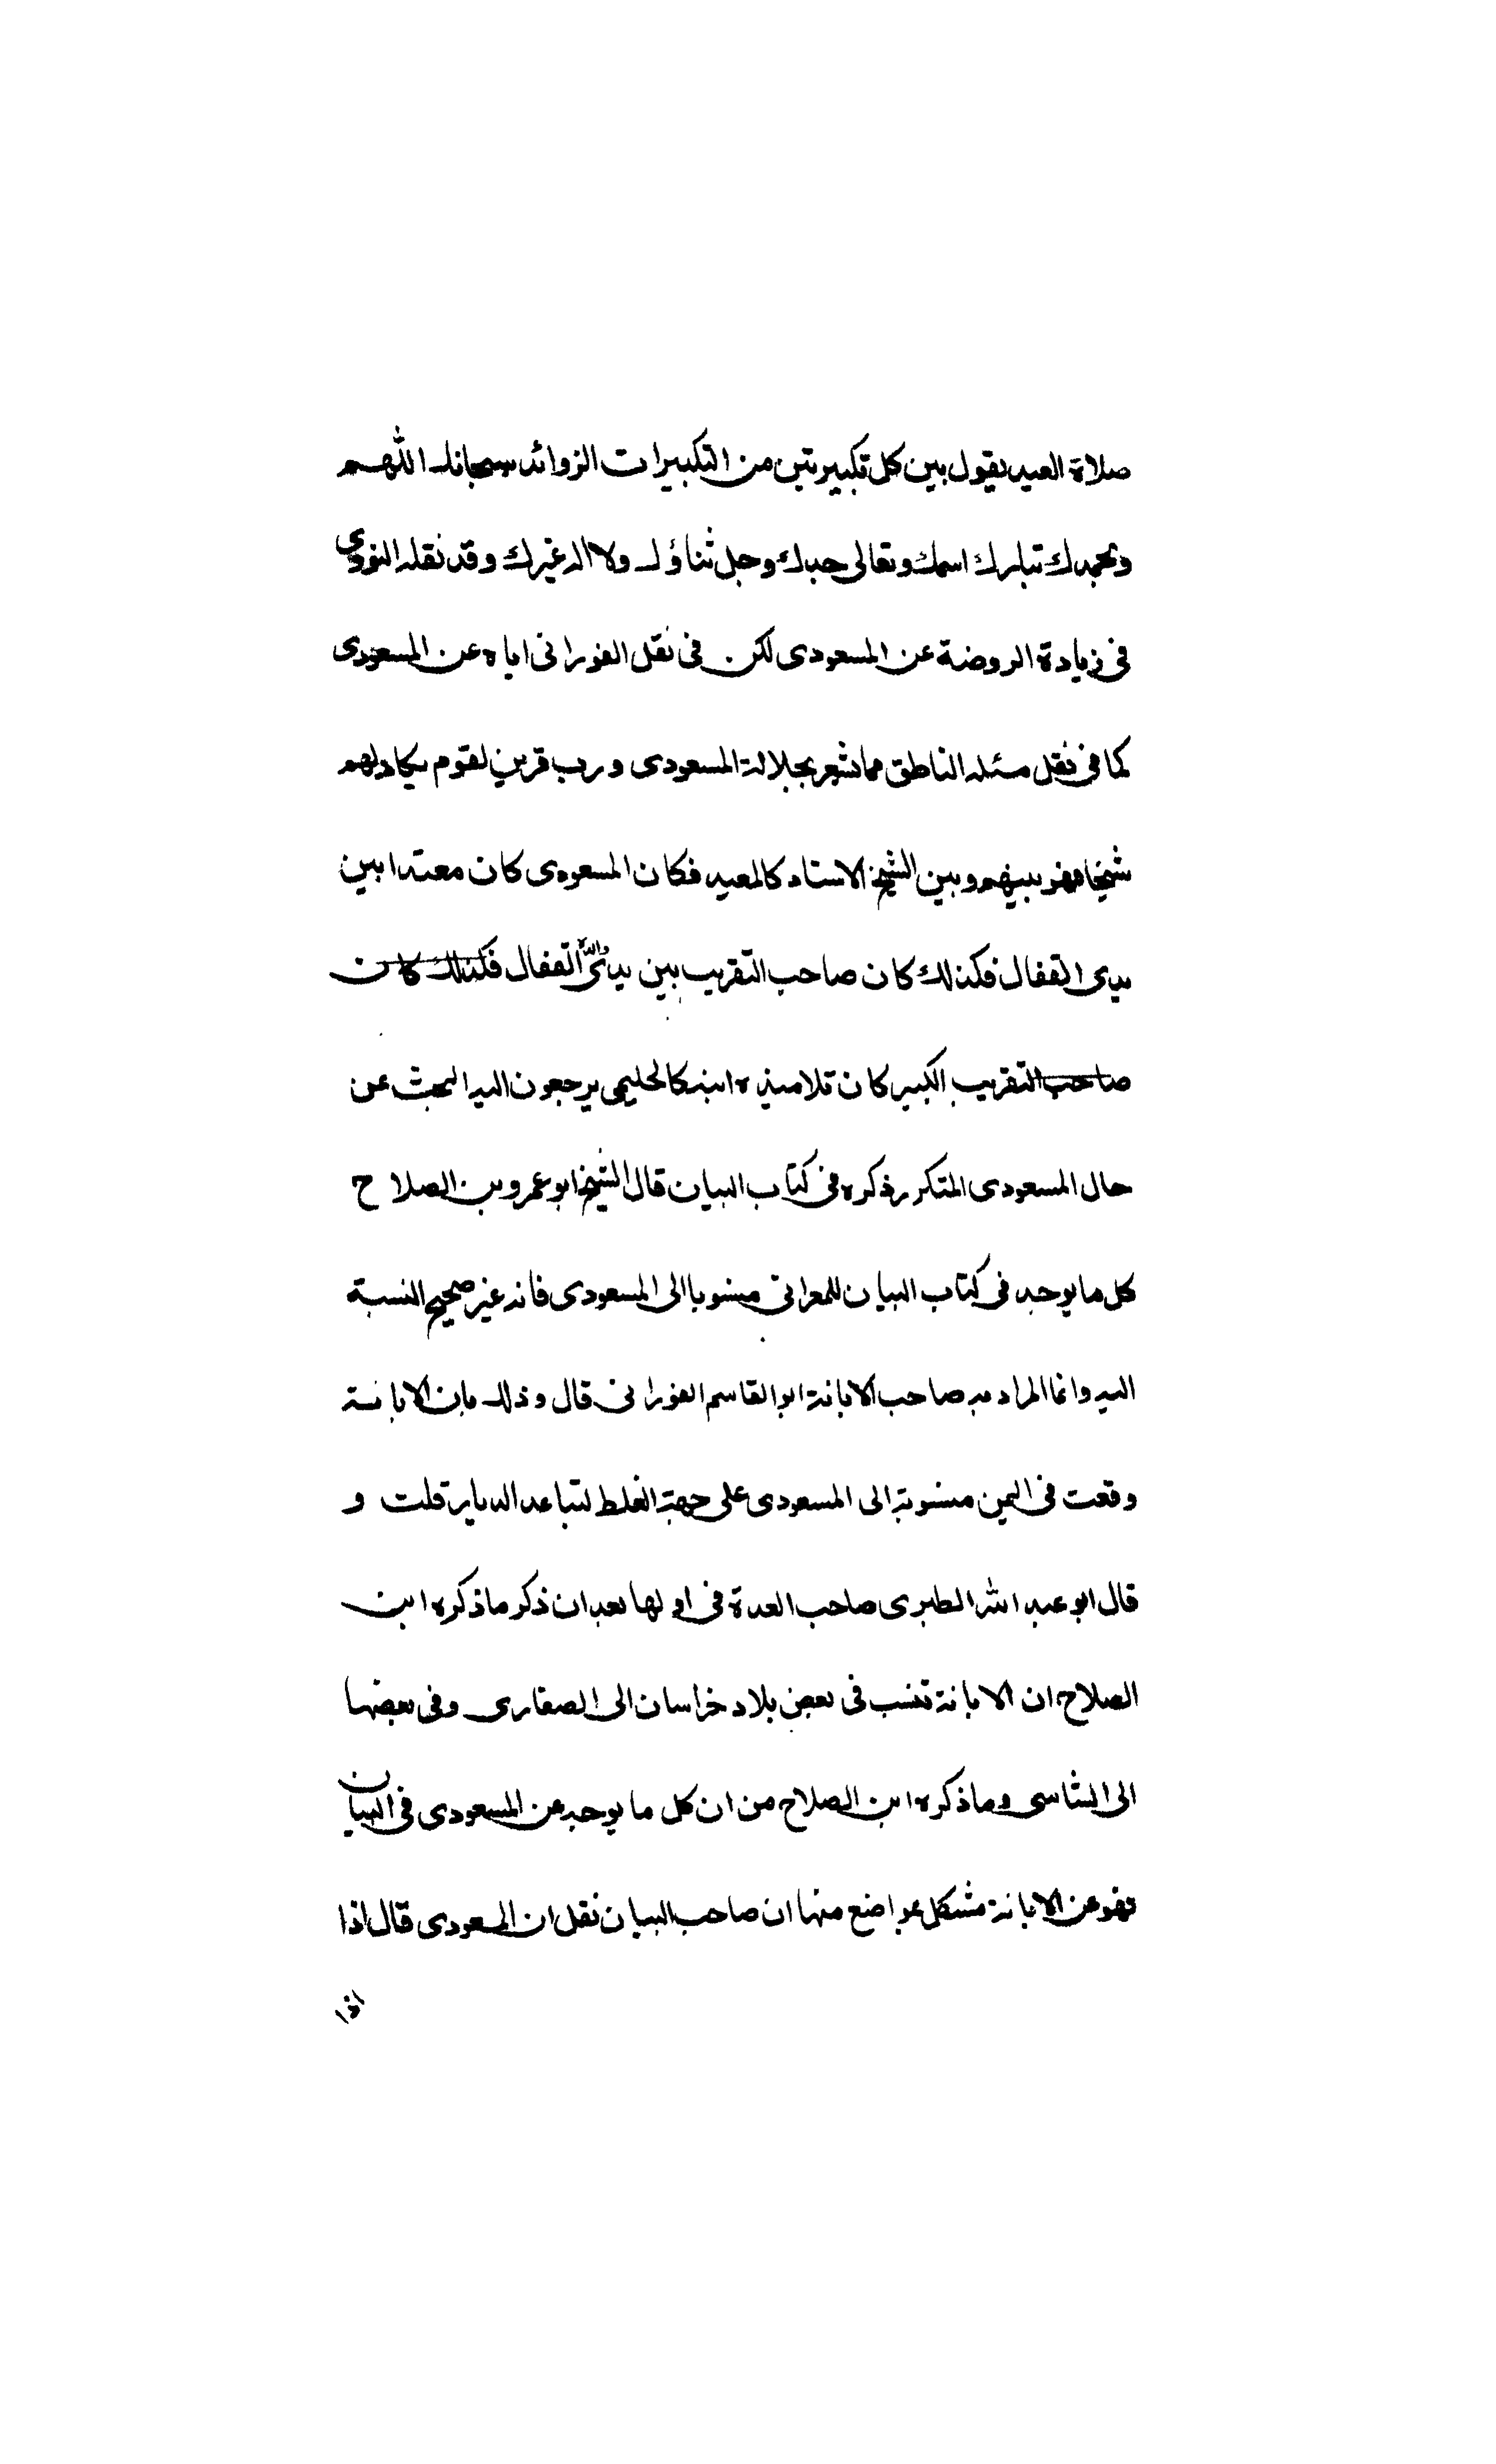 صلاة العيد يقول بين كل تكبيرتين من التكبيرات الزوائد سبحانك اللهم
وبحمدك تبارك اسمك وتعالى جدك وجل ثناؤك ولا اله غيرك وقد نقله النووى
فى زيادة الروضة عن المسعودى لكن فى نقل الفورانى اياه عن المسعودى
كما فى نقل مسئله الناطق مما يشعر بجلالة المسعودى ورب قرين لقوم يكاد لهم
شيخا فهو بينهم وبين الشيخ الاستاد كالمعيد فكان المسعودى كان معتدا بين
يدى القفال فكذلك كان صاحب التقريب بين يدى والده القفال فكذلك كان
صاحب التقريب الكبير كان تلامذة ابنه كالحليمى يرجعون اليه البحث عن
حال المسعودى المتكرر ذكره فى كتاب البيان قال الشيخ ابو عمرو بن الصلاح
كل ما يوجد فى كتاب البيان للعمرانى منسوبا الى المسعودى فانه غير صحيح النسبة
اليه وانما المراد به صاحب الابانة ابو القاسم الفورانى قال وذلك بان الابانة
وقعت فى اليمن منسوبة الى المسعودى على جهة الغلط لتباعد الديار قلت و
قال ابو عبد الله الطبرى صاحب العدة فى اولها بعد ان ذكر ما ذكره ابن
الصلاح ان الابانة تنسب فى بعض بلاد خراسان الى الصفارى وفى بعضها
الى الشاسى وما ذكره ابن الصلاح من ان كل ما يوجد عن المسعودى فى البيان
فهو عن الابانة مشكل بمواضع منها ان صاحب البيان نقل ان المسعودى قال اذا
اذا